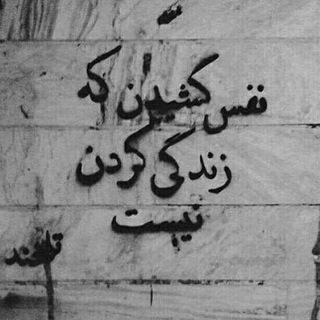 نفس کشیدن که
زندگی کردن
نیست
تلخند